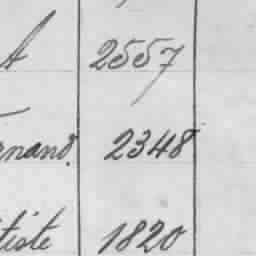 A 2557
rnand. 2348
tiste 1820